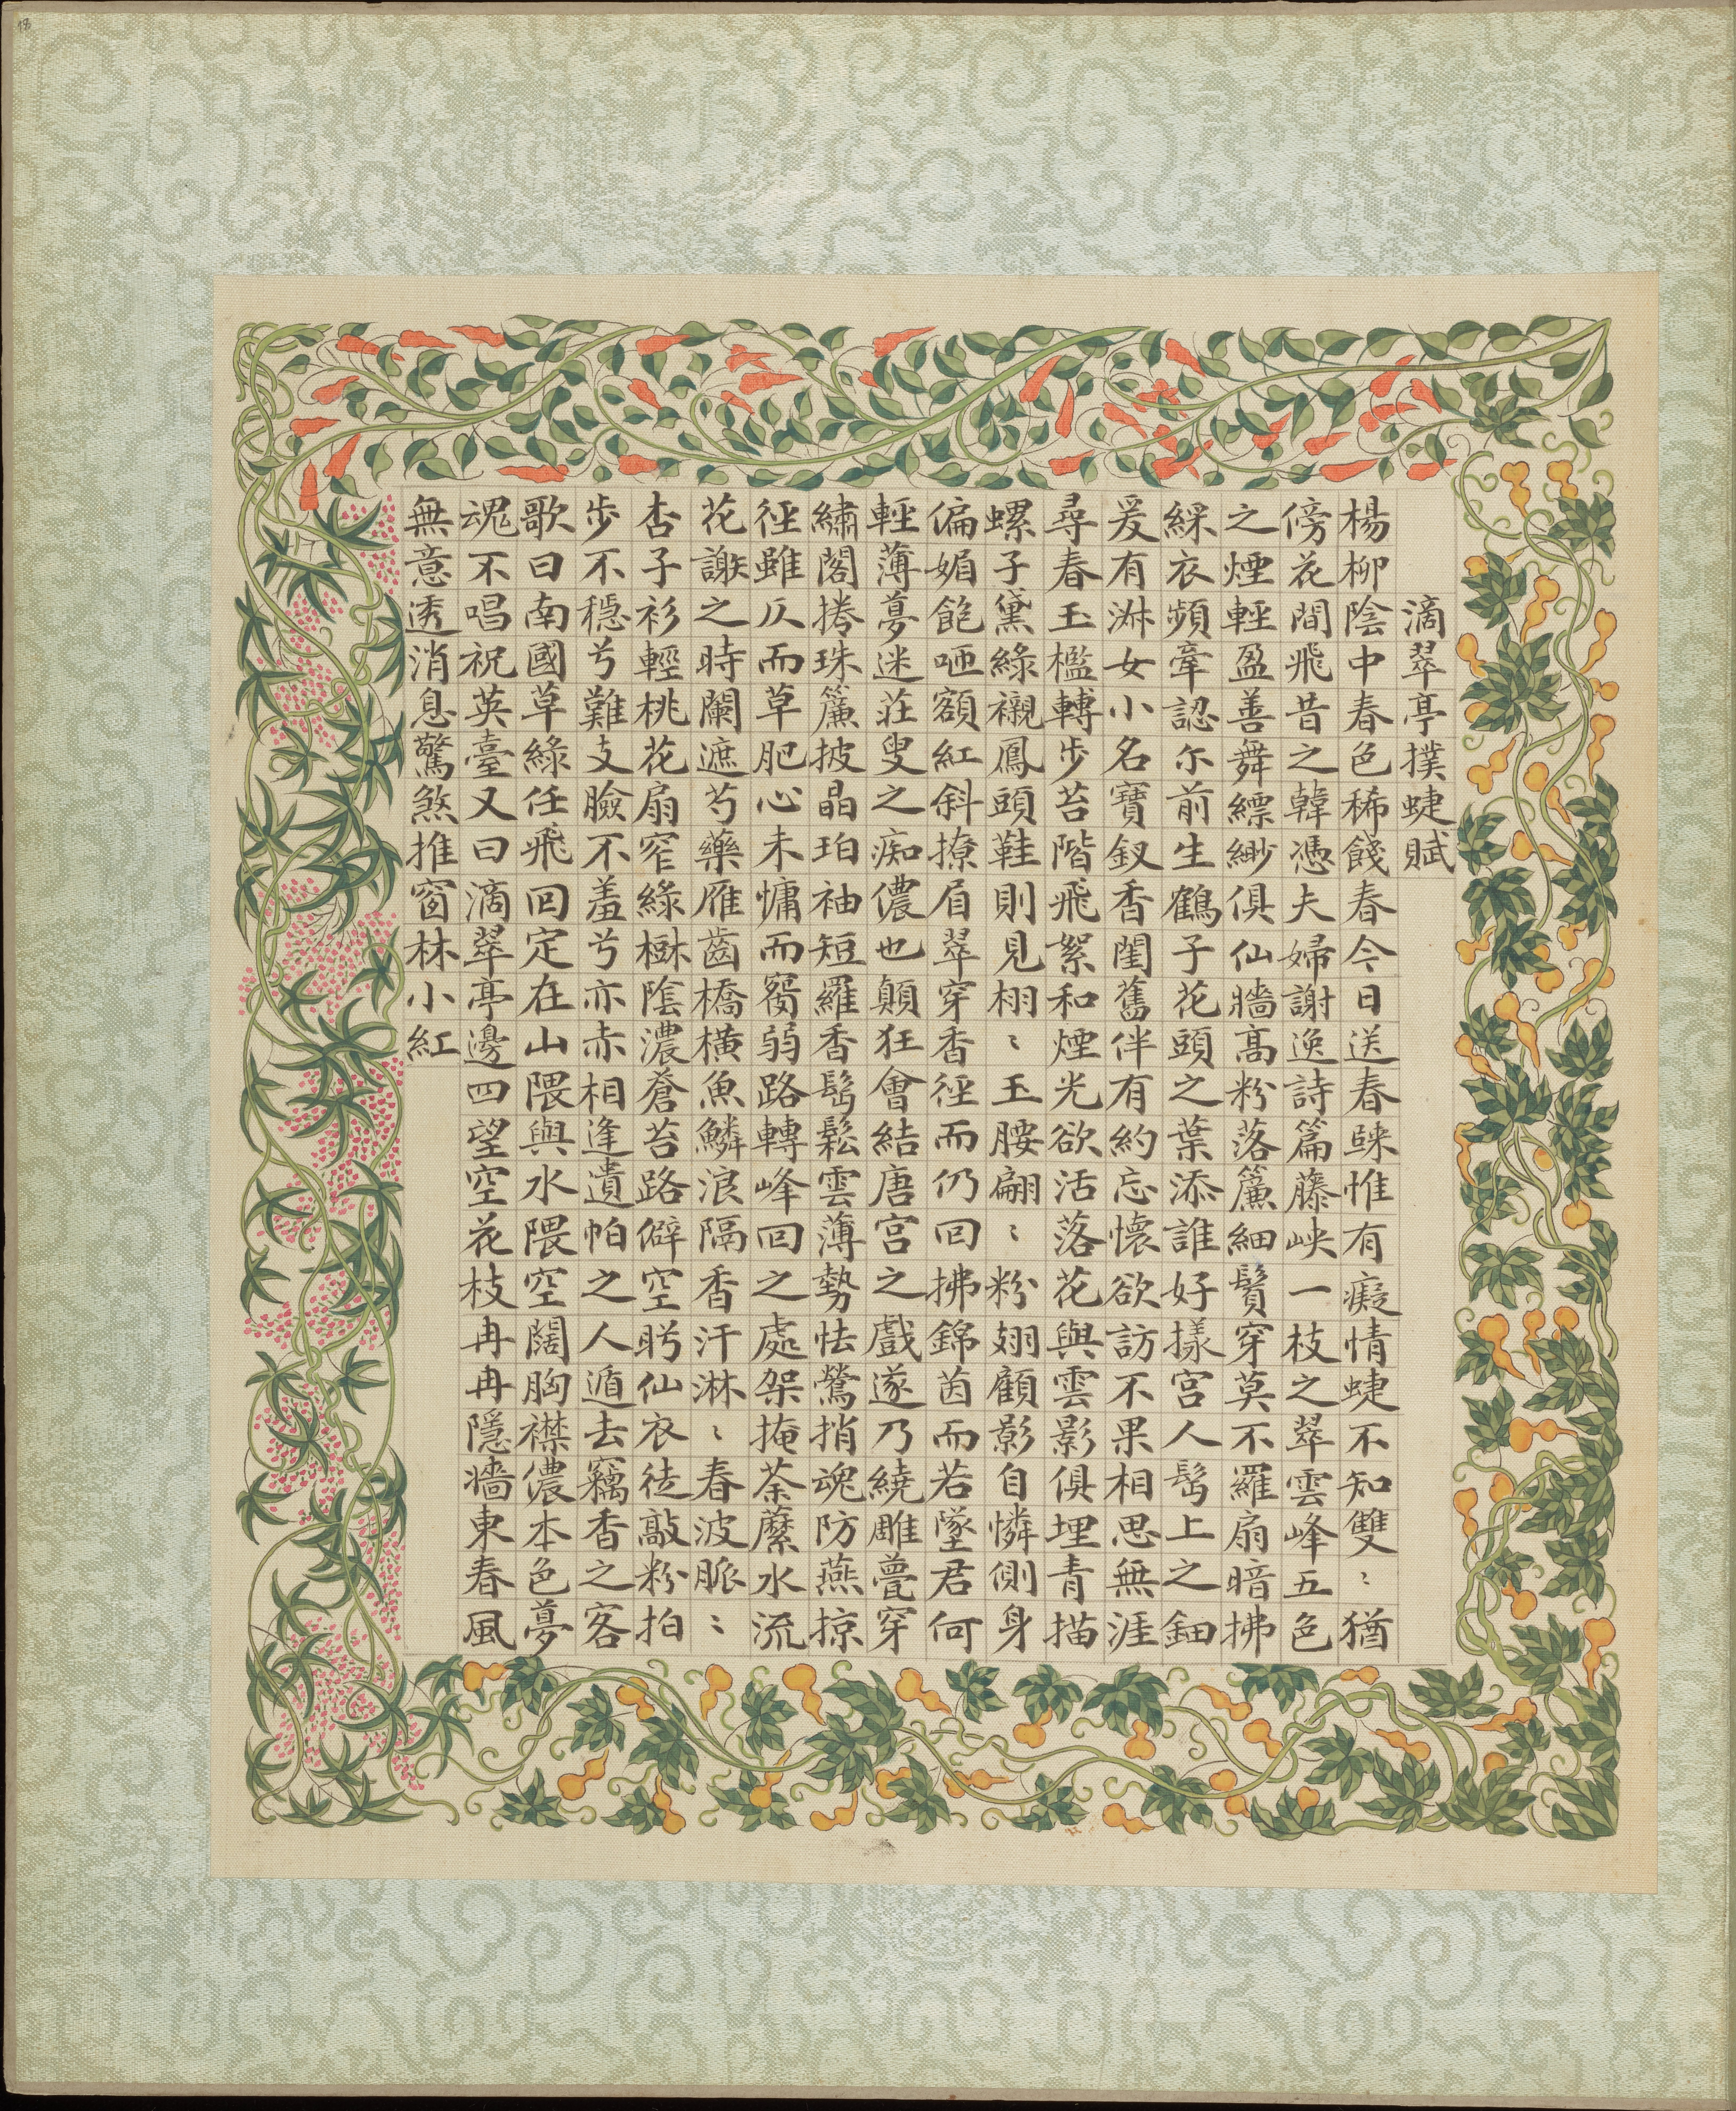 滴翠亭撲蜨賦
楊柳陰中春色稀餞春今日送春歸惟有癡情蜨不知雙〻猶
傍花間飛昔之韓憑夫婦謝逸詩篇藤峽一枝之翠雲峰五色
之煙輕盈善舞縹緲俱仙牆高粉落簾細鬢穿莫不羅扇暗拂
綵衣頻牽認尔前生鶴子花頭之葉添誰好様宮人髩上之鈿
爰有淋女小名寶釵香閨舊伴有約忘懷欲訪不果相思無涯
尋春玉檻轉步苔階飛絮和煙光欲活落花與雲影俱埋青描
螺子黛綠襯鳳頭鞋則見栩〻玉腰翩〻粉翅顧影自憐側身
偏媚飽咂額紅斜撩眉翠穿香徑而仍回拂錦茵而若墜君何
輕薄夢迷莊叟之痴儂也顛狂會結唐宮之戲遂乃繞雕甍穿
繡閣捲珠簾披晶珀袖短羅香髩鬆雲薄勢怯鶯捎魂防燕掠
徑雖仄而草肥心未慵而鬢弱路轉峰回之處架掩荼蘼水流
花謝之時闌遮芍藥雁齒橋橫魚鱗浪隔香汗淋〻春波脈〻
杏子衫輕桃花扇窄綠樾陰濃蒼苔路僻空眄仙衣徒敲粉拍
步不穩兮難支臉不羞兮亦赤相逢遺帕之人遁去竊香之客
歌曰南國草綠任飛回定在山隈與水隈空闊胸襟儂本色夢
魂不唱祝英臺又曰滴翠亭邊四望空花枝冉冉隱牆東春風
無意透消息驚煞推窗林小紅
18